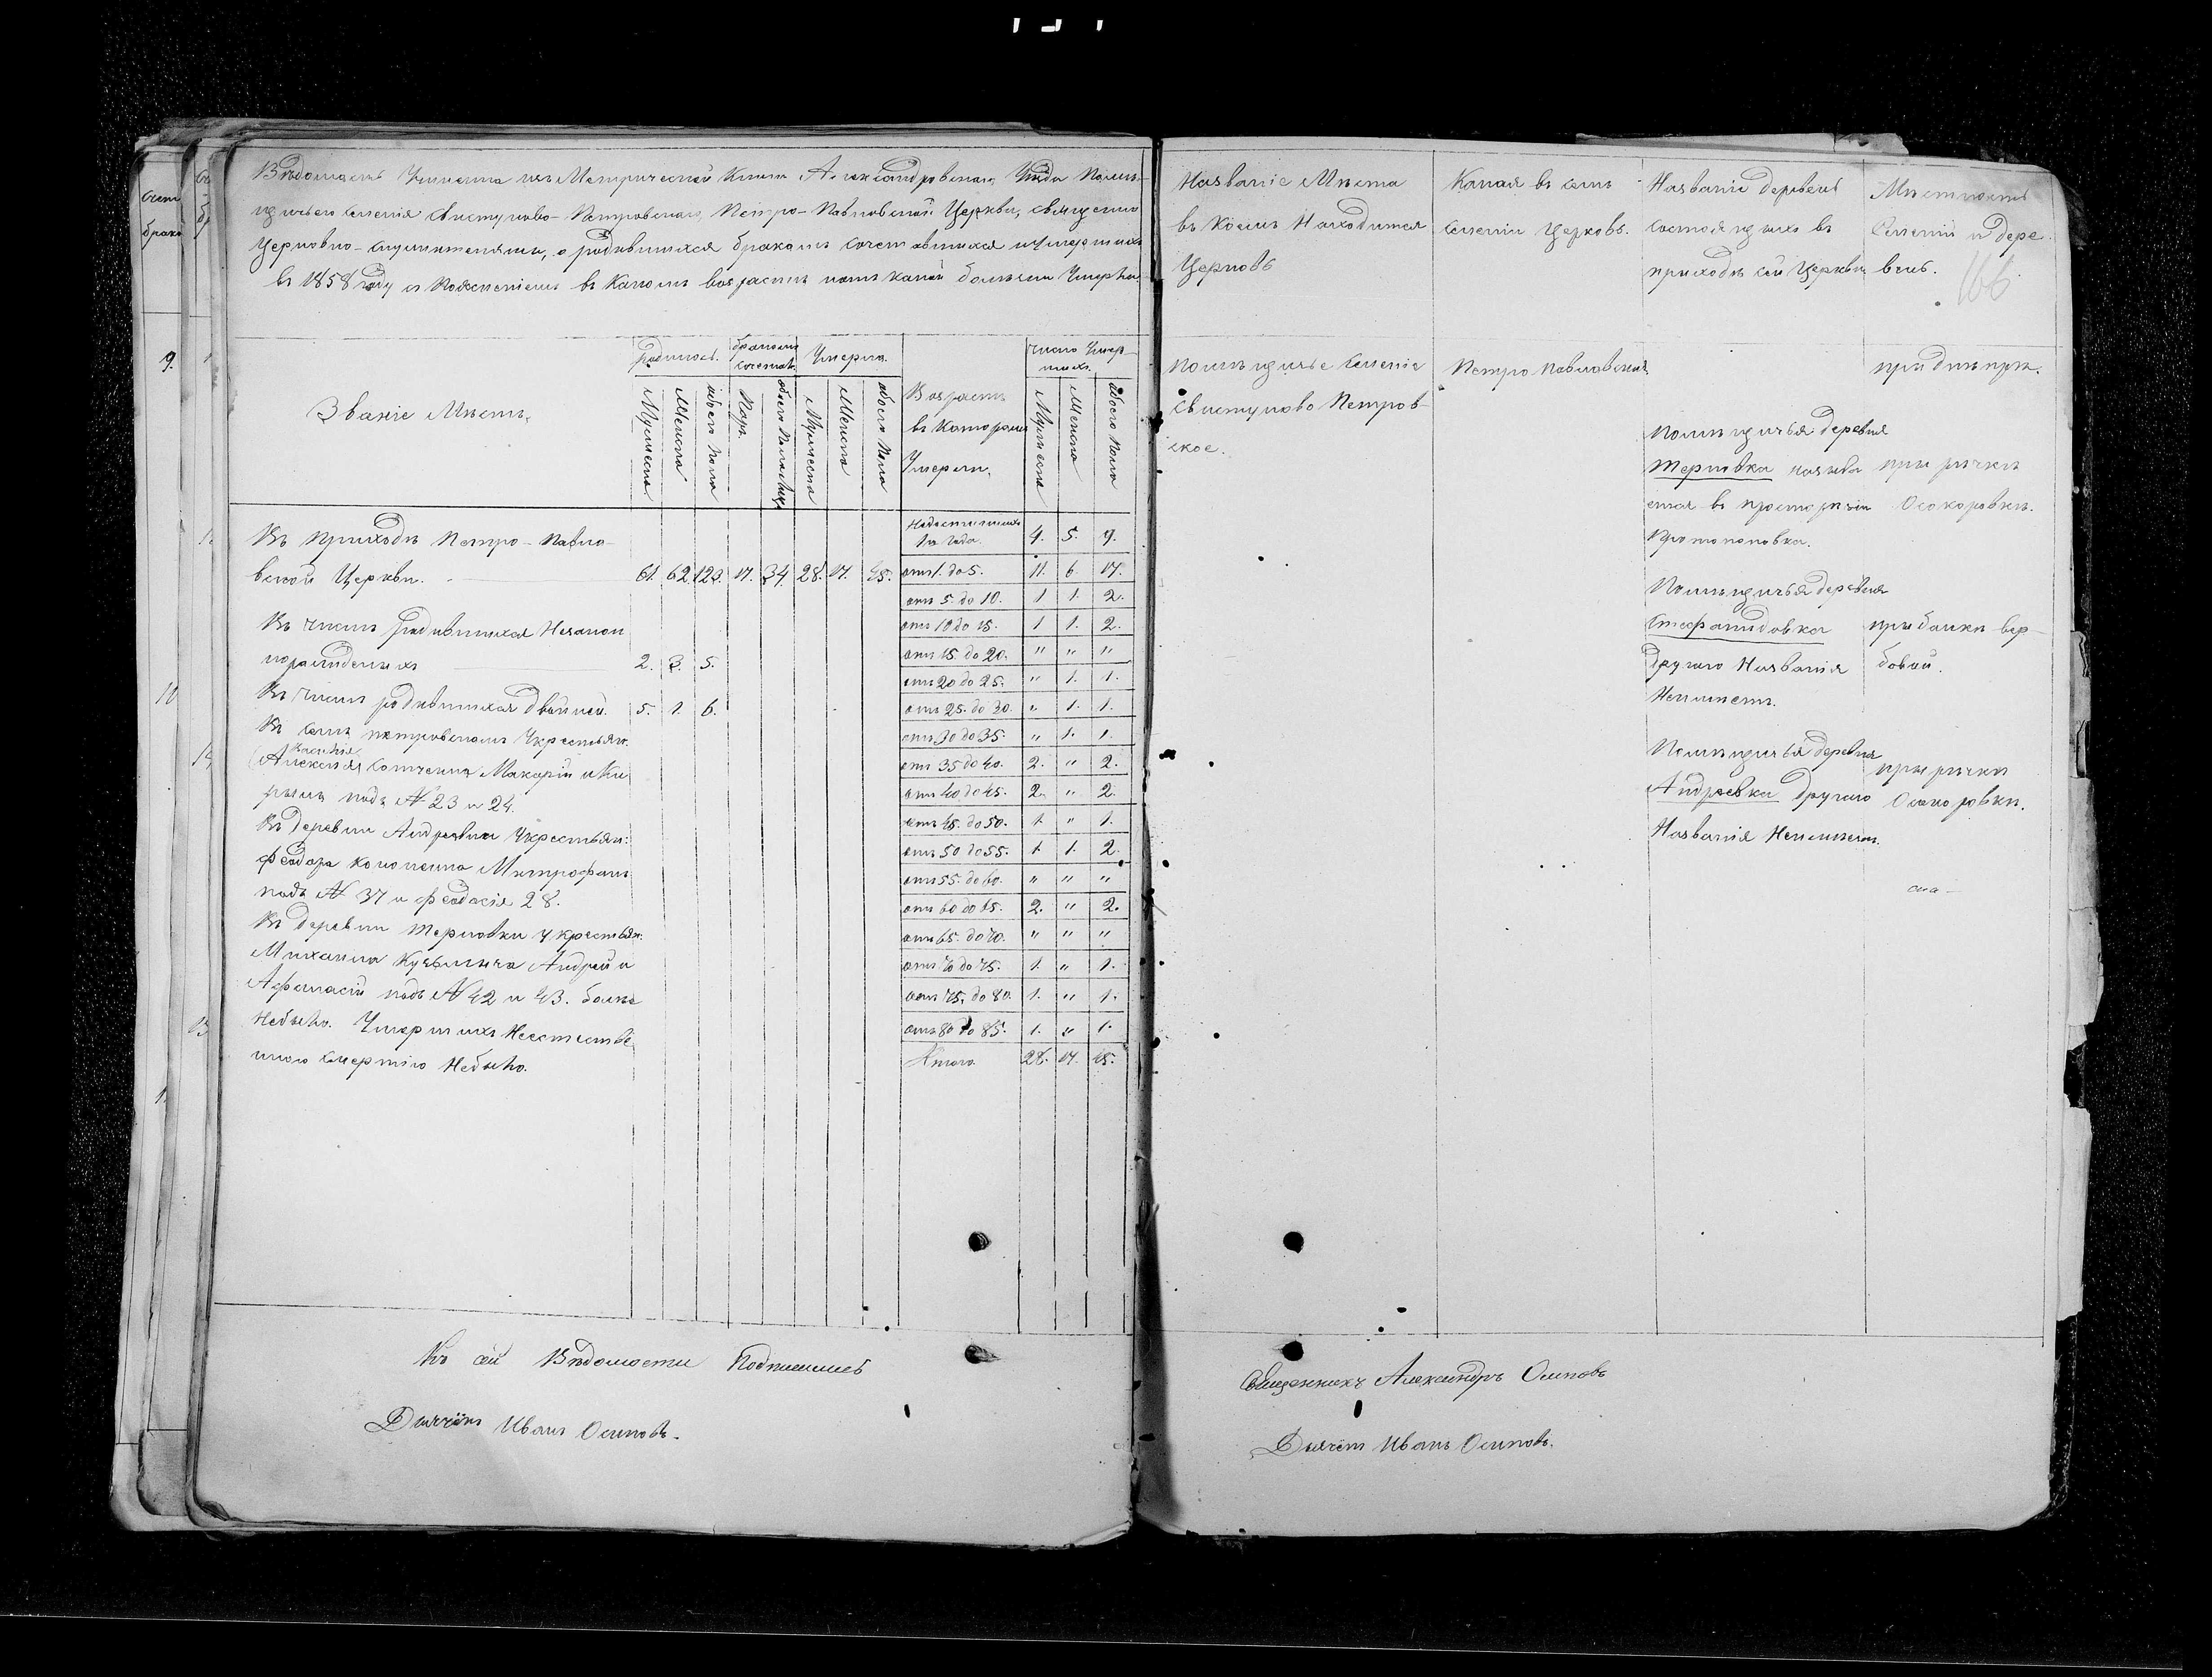 Вѣдомость Учинена изъ Метрической Книги Александровскаго Уѣзда Помѣ-
щичьего селенія Свистуново-Петровскаго, Петро-Павловской Церкви, священно
Церковно-служителями, о родившихся бракомъ сочетавшихся и Умершихъ
въ 1858 году съ Пояснениемъ въ Какомъ возрастѣ и отъ какой болѣзни Умерло
Званіе Мѣстъ.
родилось.
бракомъ сочетав.
Умерло.
Возрастъ въ Которомъ Умерли.
число Умер-
шихъ.
Мужеска
Женска
обоего Пола
Паръ.
обоего Пола Лицъ
Мужеска
Женска
обоего Пола
Мужеска
Женска
обоего Пола
Въ Приходѣ Петро-Павло-
вской Церкви. 61. 62. 123. 17. 34. 28. 17. 45.
Въ числѣ родившихся Незакон
норожденныхъ 2. 3. 5.
Въ числѣ родившихся двойней. 5. 1. 6.
Въ селѣ петровскомъ Укрестьян.
Алексѣя Макарій и Ки
рылъ подъ № 23 и 24.
Въ деревни Андреевки Укрестьян:
Феодора Кононенка Митрофанъ
подъ № 37 и Феодосія 28.
Въ деревни Терновки Укрестьян:
Михаила Кузьмича Андрей и
Афанасій подъ № 42 и 43. болѣе
Небыло. Умершихъ Неестестве
нною смертію Небыло.
Недостигшихъ
1го Года. 4. 5. 9.
отъ 1. до 5. 11. 6. 17.
отъ 5. до 10. 1 1. 2.
отъ 10 до 15. 1 1. 2.
отъ 15. до 20. " " "
отъ 20 до 25. " 1. 1.
отъ 25. до 30. " 1. 1.
отъ 30 до 35. " 1. 1.
отъ 35 до 40. 2. " 2.
отъ 40 до 45. 2. " 2.
отъ 45. до 50. 1. " 1.
отъ 50 до 55. 1. 1. 2.
отъ 55. до 60. " " "
отъ 60 до 65. 2. " 2.
отъ 65. до 70. " " "
отъ 70 до 75. 1. " 1.
отъ 75. до 80. 1. " 1.
отъ 80 до 85. 1. " 1.
Итого 28. 17. 45.
Къ сей Вѣдомости Подписались
Дьячёкъ Иванъ Осиповъ.
Названіе Мѣста
въ Коемъ Находится
Церковь
Какая въ семъ
селеніи Церковь.
Названіе деревень
состоящихъ въ
приходѣ сей Церкви
Мѣстность
селеній и дере
внь.
166
Помѣщичье селеніе
Свистуново Петров-
ское.
Петро Павловская
при днѣпрѣ.
Помѣщичья деревня
Терновка называ
ется въ просторѣчіи
Протопоповка.
при рѣчкѣ
Осокоровкѣ.
Помѣщичья деревня
Стефанидовка
другаго Названія
Неимѣетъ.
при балки вер-
бовой.
Помѣщичья деревня
Андреевка другаго
Названія Неимѣетъ.
при рѣчки
Осокоровки.
Священникъ Александръ Осиповъ
Дьячёкъ Иванъ Осиповъ.
счет
брако
9.
10